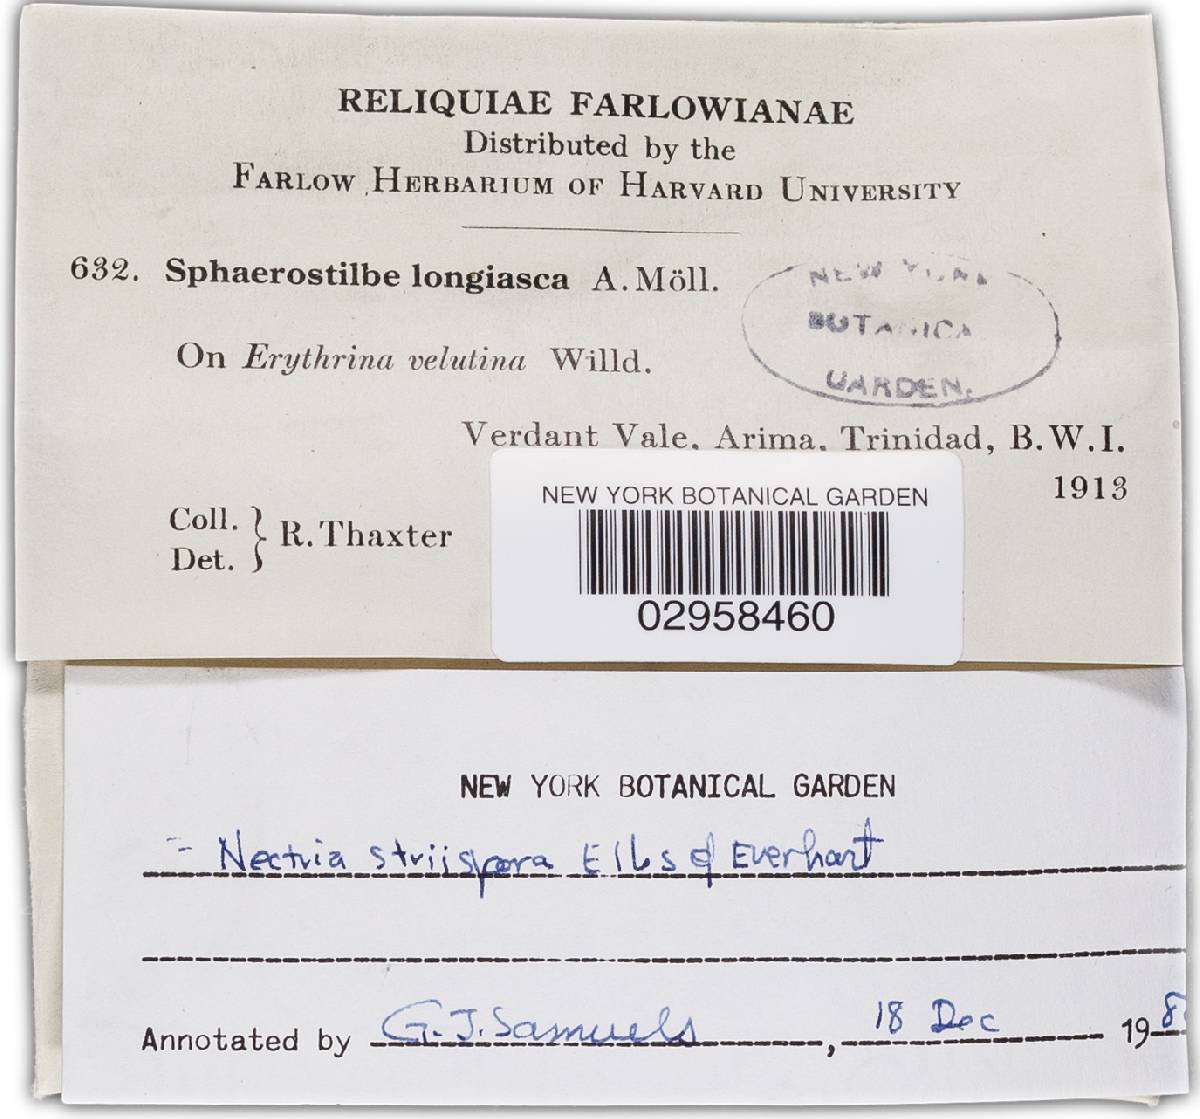 RELIQUIAE FARLOWIANAE
Distributed by the
FARLOW HERBARIUM OF HARVARD UNIVERSITY
632. Sphaerostilbe longiasca A. Möll.
NEW YORK
BOTANICAL
GARDEN.
On Erythrina velutina Willd.
Verdant Vale, Arima, Trinidad, B.W.I.
1913
Coll.
Det. } R. Thaxter
NEW YORK BOTANICAL GARDEN
02958460
NEW YORK BOTANICAL GARDEN
= Nectria striispora Ellis & Everhart
Annotated by G. J. Samuels, 18 Dec 198